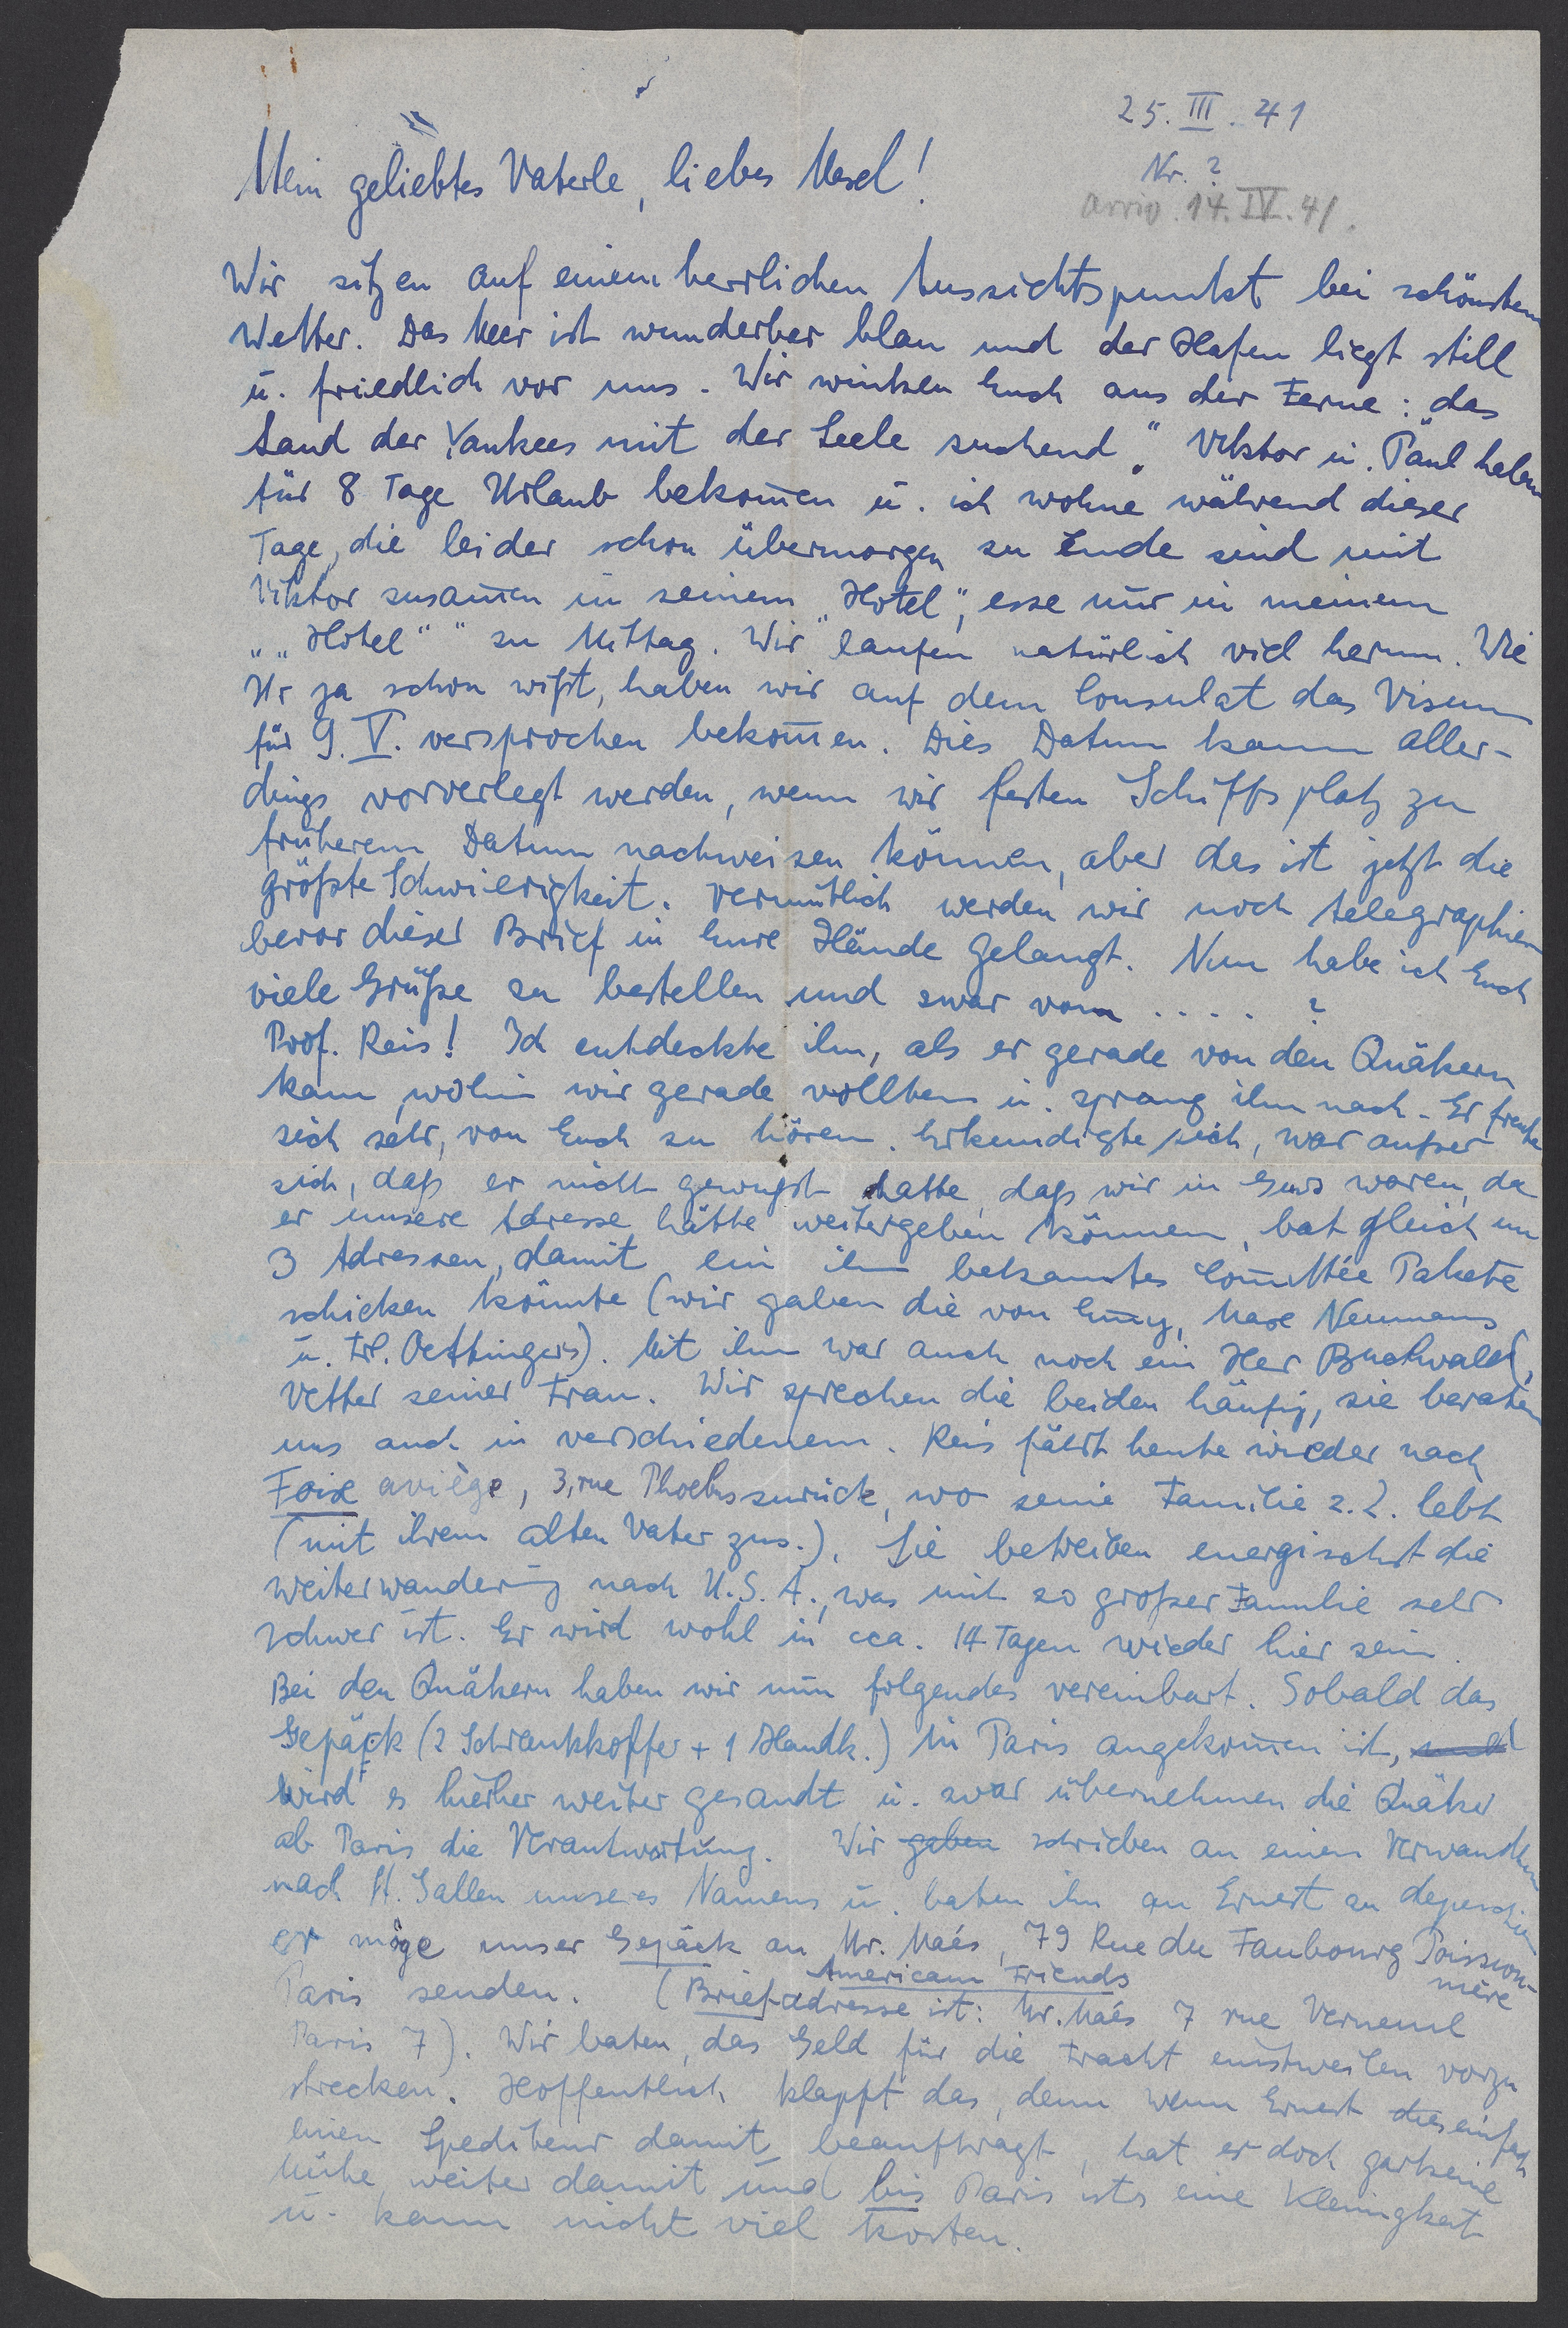 25. III. 41
Nr. ?
arriv. 14. IV. 41.
Mein geliebtes Vaterle, liebes Mesel!
Wir sitzen auf einem herrlichen Aussichtspunkt bei schönstem
Wetter. Das Meer ist wunderbar blau und der Hafen liegt still
u. friedlich vor uns. Wir winken Euch aus der Ferne: „das
Land der Yankees mit der Seele suchend“. Viktor u. Paul haben
für 8 Tage Urlaub bekom̅en u. ich wohne während dieser
Tage, die leider schon übermorgen zu Ende sind mit
Viktor zusam̅en in seinem „Hotel“, esse nur in meinem
„„Hotel““ zu Mittag. Wir laufen natürlich viel herum. Wie
Ihr ja schon wißt, haben wir auf dem Consulat das Visum
für 9. V. versprochen bekom̅en. Dies Datum kann aller-
dings vorverlegt werden, wenn wir festen Schiffsplatz zu
früherem Datum nachweisen können, aber das ist jetzt die
größte Schwierigkeit. Vermutlich werden wir noch telegraphieren
bevor dieser Brief in Eure Hände gelangt. Nun habe ich Euch
viele Grüße zu bestellen und zwar von . . . . ?
Prof. Reis! Ich entdeckte ihn, als er gerade von den Quäkern
kam, wohin wir gerade wollten u. sprang ihm nach. Er freute
sich sehr, von Euch zu hören. Erkundigte sich, war außer
sich, daß er nicht gewußt hatte, daß wir in Gurs waren, da
er unsere Adresse hätte weitergeben können, bat gleich um
3 Adressen, damit ein ihm bekanntes Com̅ittée Pakete
schicken könnte (wir gaben die von Em̅y, Max Neumanns
u. Frl. Oettingers). Mit ihm war auch noch ein Herr Buchwald,
Vetter seiner Frau. Wir sprechen die beiden häufig, sie beraten
uns auch in verschiedenem. Reis fährt heute wieder nach
Foix ariège, 3, rue Phoebus zurück, wo seine Familie z. Z. lebt
(mit ihrem alten Vater zus.). Sie betreiben energischst die
Weiterwanderung nach U.S.A., was mit so großer Familie sehr
schwer ist. Er wird wohl in cca. 14 Tagen wieder hier sein.
Bei den Quäkern haben wir nun folgendes vereinbart. Sobald das
Gepäck (2 Schrankkoffer + 1 Handk.) in Paris angekom̅en ist,
wird es hierher weiter gesandt u. zwar übernehmen die Quäker
ab Paris die Verantwortung. Wir gaben schrieben an einen Verwandten
nach St. Gallen unseres Namens u. baten ihn an Ernest zu depeschieren
er möge unser Gepäck an Mr. Maés, 79 Rue du Faubourg Poisson-
nière
Paris senden. (Briefadresse ist: American Friends Mr. Maés 7 rue Verneuil
Paris 7). Wir baten, das Geld für die Fracht einstweilen vorzu
strecken. Hoffentlich klappt das, denn wenn Ernest dies einfach
einen Spediteur damit beauftragt, hat er doch garkeine
Mühe weiter damit und bis Paris ists eine Kleinigkeit
u. kann nicht viel kosten.